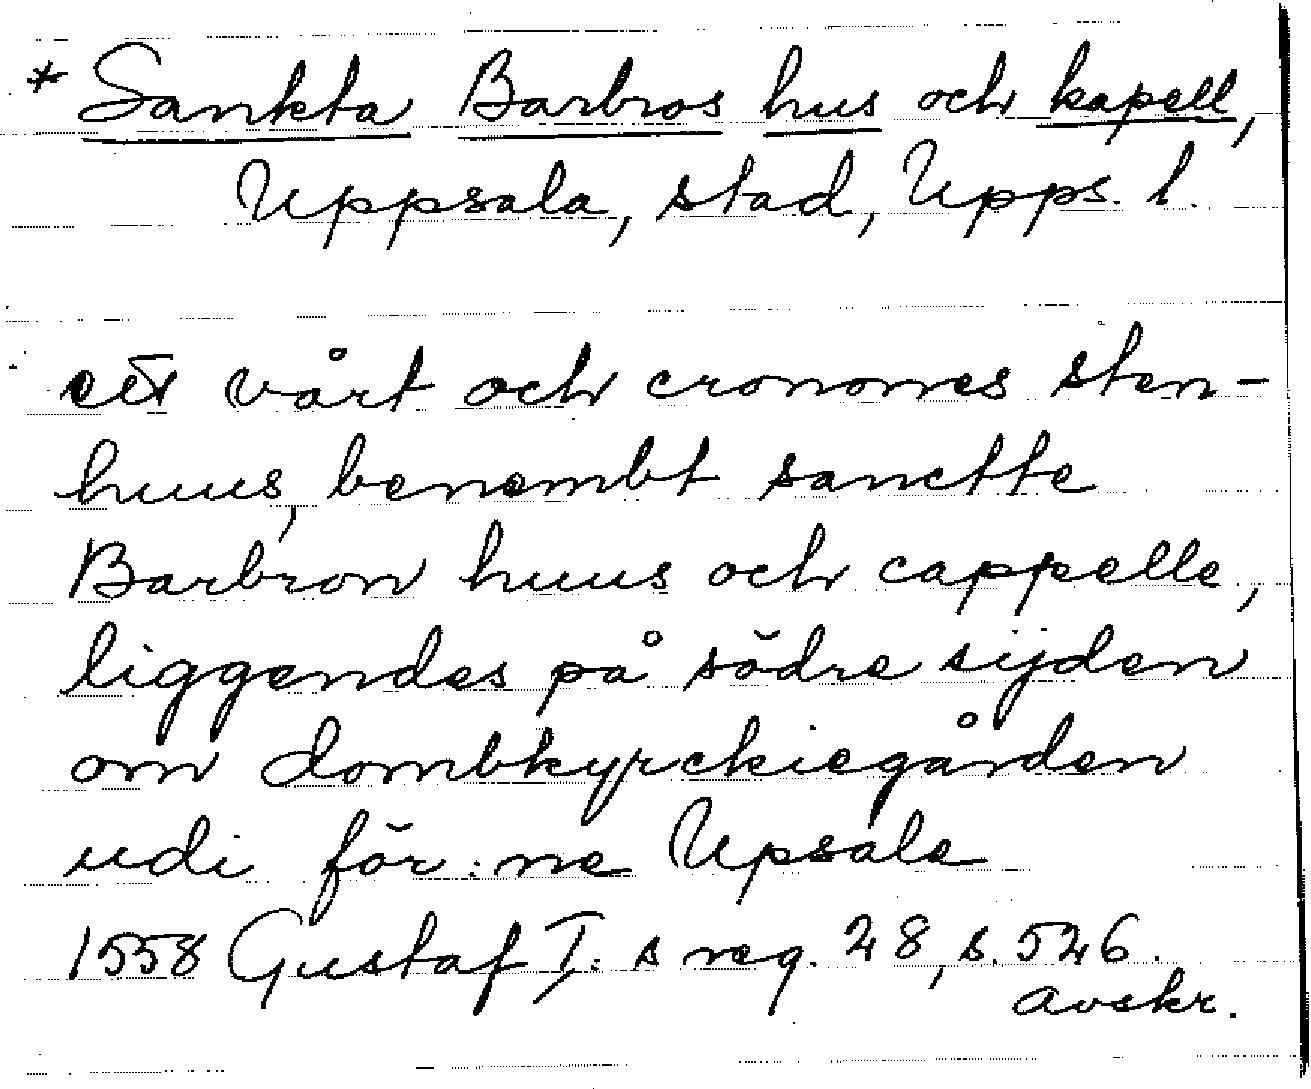 * Sankta Barbros hus och kapell,
Uppsala, stad, Upps. l.
ett vårt och cronones sten-
huus, benembt sanctte
Barbron huus och cappelle,
liggendes på södre sijden
om dombkyrckiegården
udi för:ne Upsale
1558 Gustaf I:s reg. 28, s. 526.
avskr.